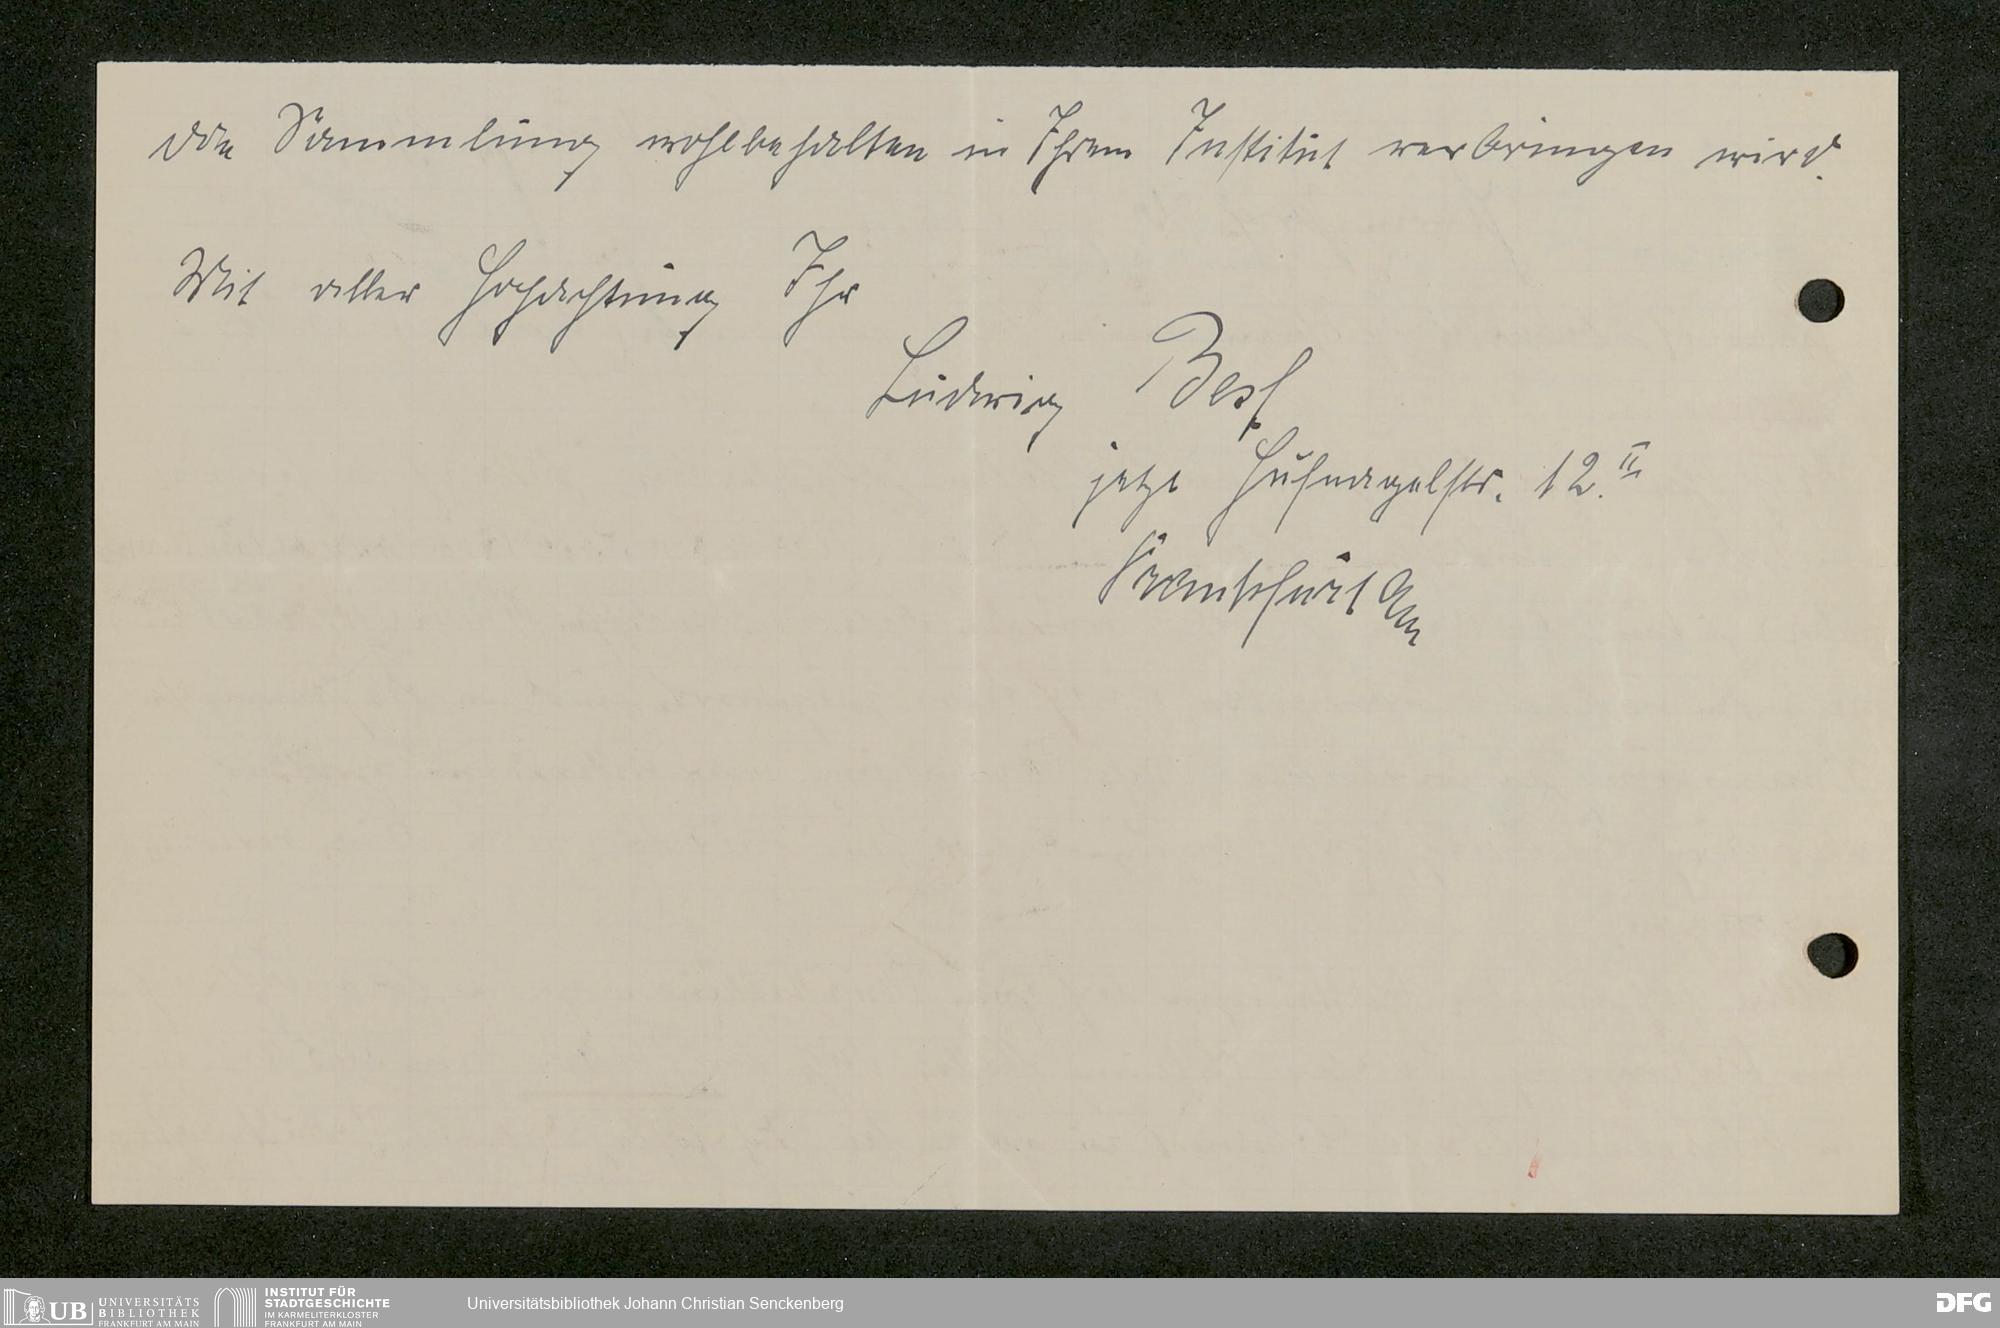 die Sammlung wohlbehalten in Ihrem Institut verbringen wird.
Mit aller Hochachtung Ihr
Ludwig
jetzt Hufnagelstr. 12.II
Frankfurt a/M
UB UNIVERSITÄTS
BIBLIOTHEK
FRANKFURT AM MAIN
INSTITUT FÜR
STADTGESCHICHTE
IM KARMELITERKLOSTER
FRANKFURT AM MAIN
Universitätsbibliothek Johann Christian Senckenberg
DFG